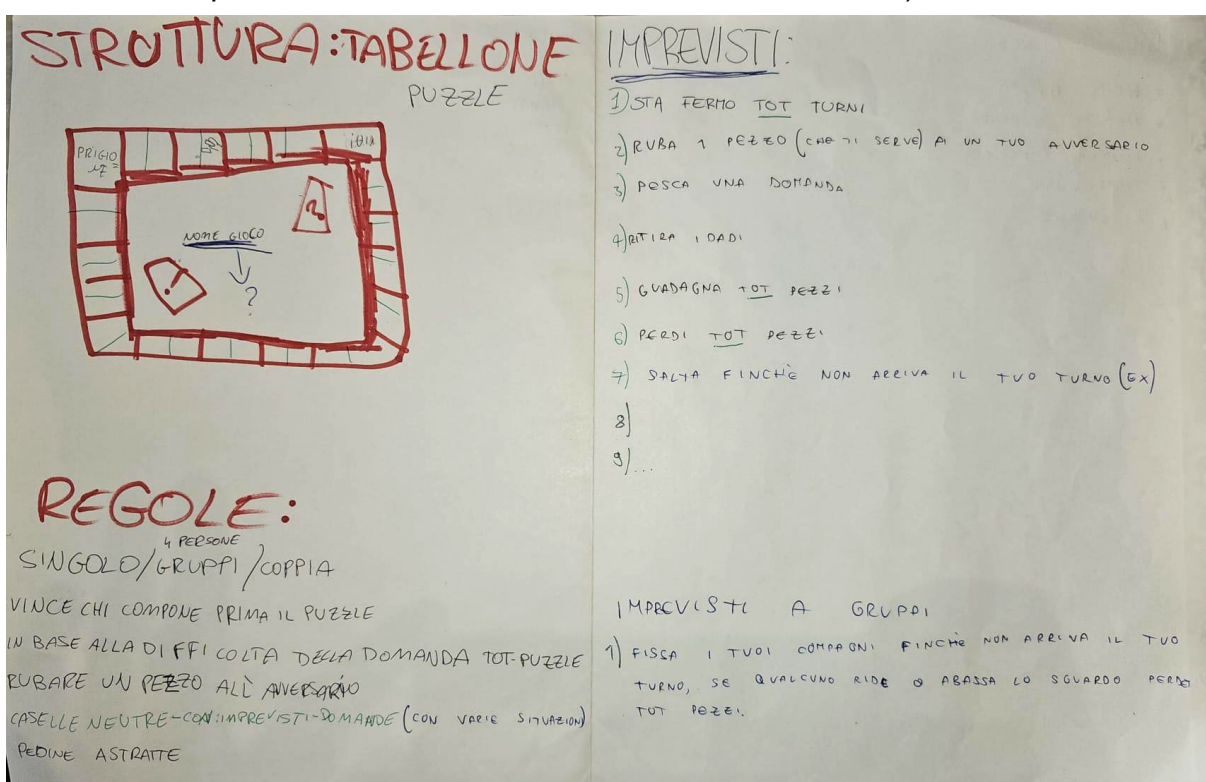 STRUTTURA: TABELLONE
PUZZLE
PRIGIO
NE
NOME GIOCO
?
!
?
REGOLE:
4 PERSONE
SINGOLO/GRUPPI/COPPIA
VINCE CHI COMPONE PRIMA IL PUZZLE
IN BASE ALLA DIFFICOLTA DELLA DOMANDA TOT-PUZZLE
RUBARE UN PEZZO ALL'AVVERSARIO
CASELLE NEUTRE-CON:IMPREVISTI-DOMANDE (CON VARIE SITUAZIONI)
PEDINE ASTRATTE
IMPREVISTI:
1) STA FERMO TOT TURNI
2) RUBA 1 PEZZO (CHE TI SERVE) A UN TUO AVVERSARIO
3) PESCA UNA DOMANDA
4) RITIRA I DADI
5) GUADAGNA TOT PEZZI
6) PERDI TOT PEZZI
7) SALTA FINCHÈ NON ARRIVA IL TUO TURNO (EX)
8)
9)...
IMPREVISTI A GRUPPI
1) FISSA I TUOI COMPAGNI FINCHÈ NON ARRIVA IL TUO
TURNO, SE QUALCUNO RIDE O ABASSA LO SGUARDO PERDI
TOT PEZZI.